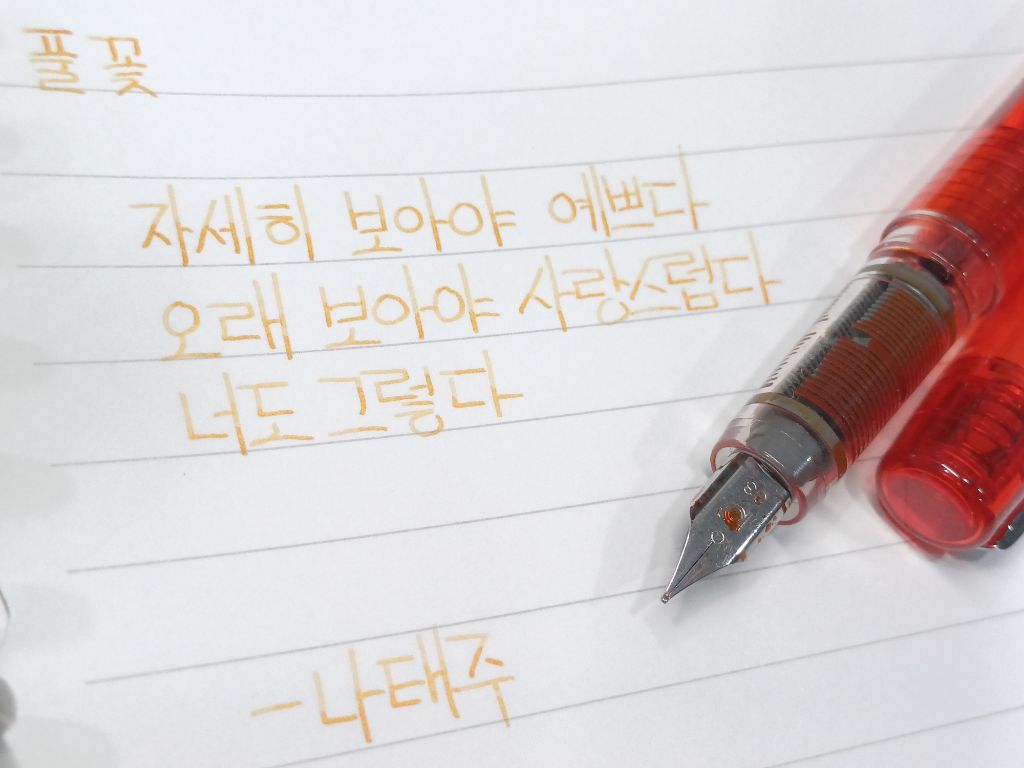 풀꽃
자세히 보아야 예쁘다
오래 보아야 사랑스럽다
너도 그렇다
- 나태주